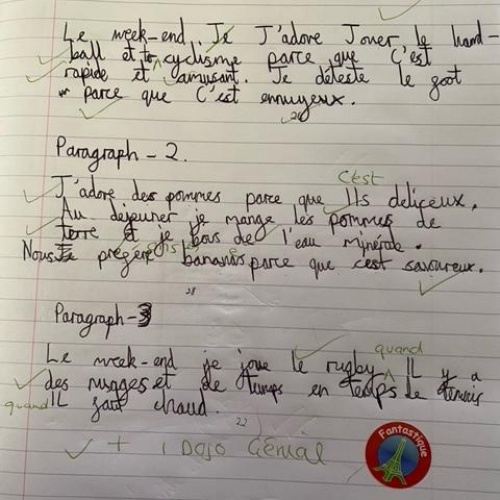 Le week-end Je J'adore Jouer le hand-
ball et le cyclisme parce que C'est
rapide et amusant. Je déteste le goot
parce que C'est ennuyeux.
Paragraph - 2.
C'est
J'adore des pommes parce que Ils deliceux.
Au déjeuner je mange les pommes de
terre et je bois de l'eau minérale.
Nous
bananas parce que c'est savoureux.
28
Paragraph - 3
quand
Le week-end je joue le rugby IL y a
des nuages et de temps en temps le tennis
quand IL gait chaud.
22
+ 1 DOJO Génial
Fantastique